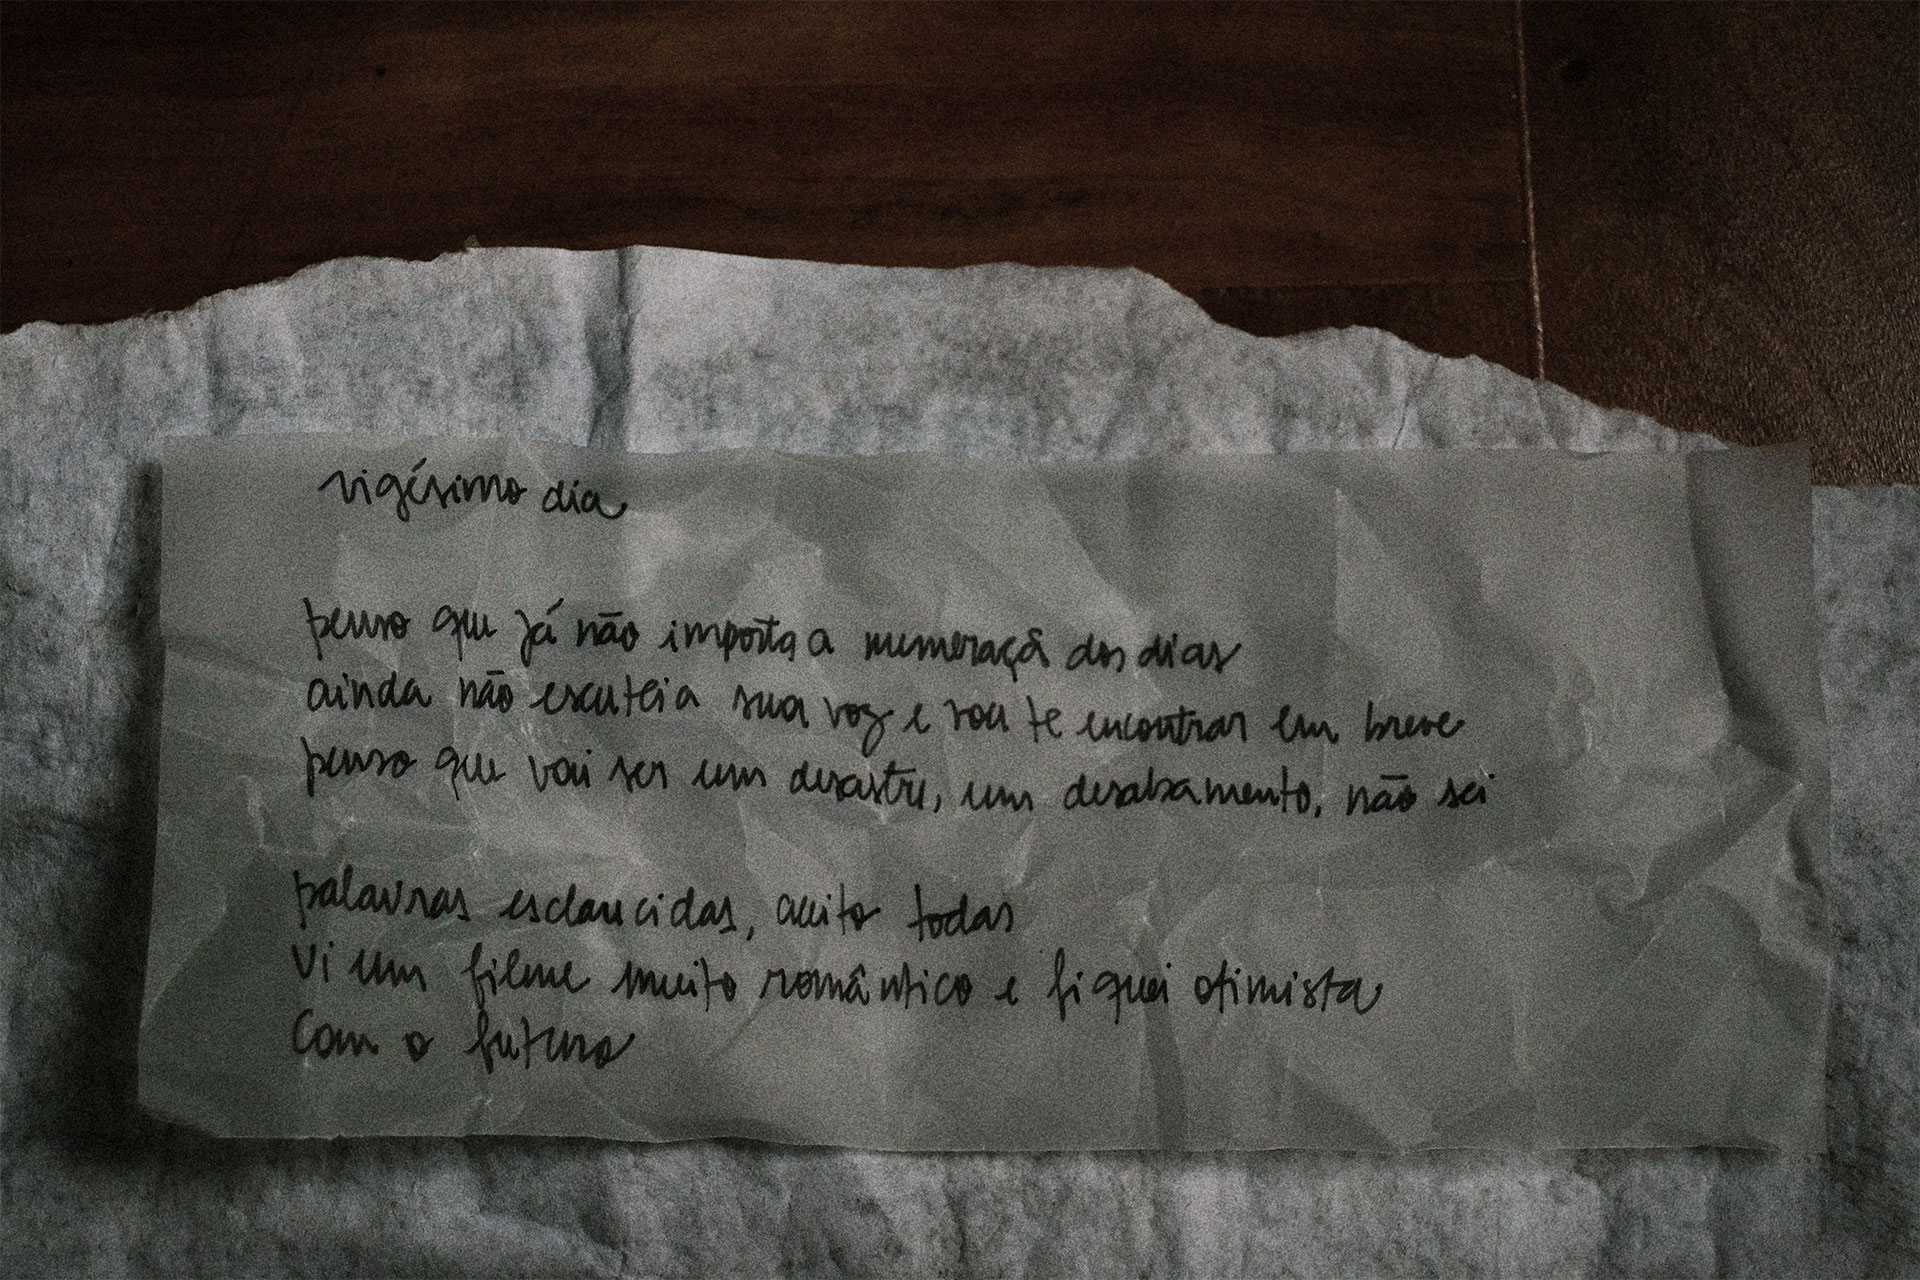 vigésimo dia
penso que já não importa a numeraçã dos dias
ainda não escutei a sua voz e vou te encontrar em breve
penso que vai ser um desastre, um desabamento, não sei
palavras esclarecidas, aceito todas
Vi um filme muito romântico e fiquei otimista
Com o futuro